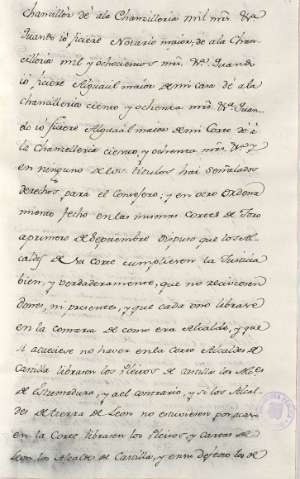 Chanciller dé á la Chancilleria mil mrs. Yta
Quando io ficiere Notario maior, dé á la Chan-
cilleria mil y ochocientos mrs. Yta. Quando
io ficiere Alguacil maior de mi casa dé á la
Chancilleria ciento y ochenta mrs. Yta. Quan-
do io ficiere Alguacil maior de mi Corte dé á
la Chancilleria ciento, y ochenta mrs. Y
en ninguno de los titulos hai señalados
derechos para el Consejero; y en otro Ordena
miento fecho en las mismas Cortes de Toro
a primero de Septiembre dispuso que los Al-
caldes de su Corte cumpliesen la Justicia
bien, y verdaderamente, que no reciviesen
dones, ni presentes, y que cada uno librase
en la comarca de donde era Alcalde, y que
si acaeciese no haver en la Corte Alcaldes de
Castilla librasen los Pleitos de Castilla los Alcs.
de Estremadura, y a el contrario, y si los Alcal-
des de tierra de Leon no estuviesen por acaso
en la Corte librasen los Pleitos, y cartas de
Leon los Alcaldes de Castilla, y en su defecto los de